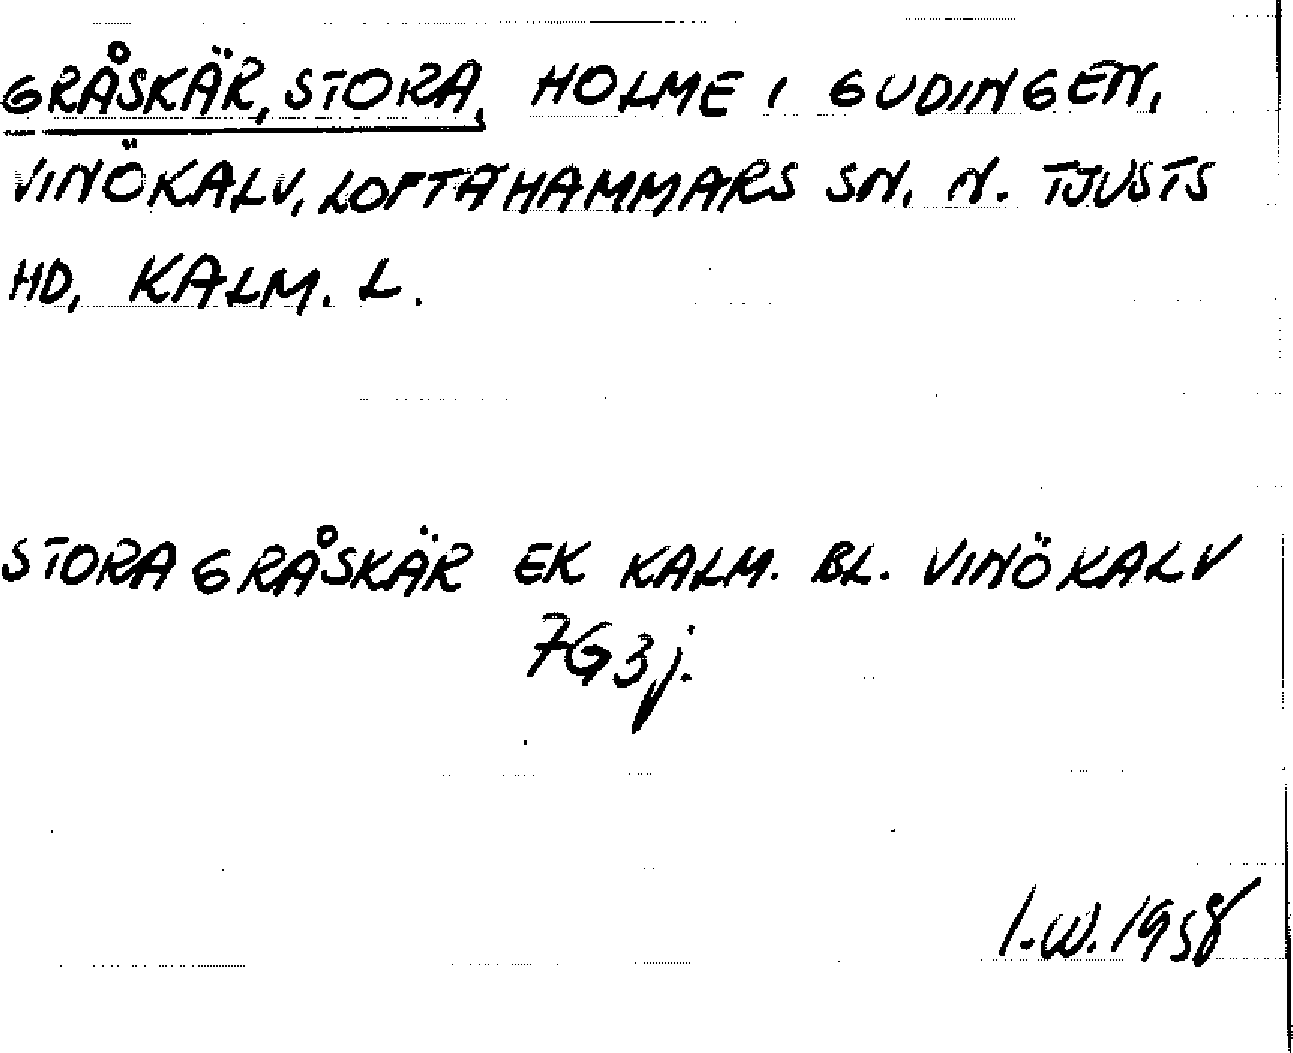 GRÅSKÄR, STORA, HOLME I GUDINGEN,
VINÖKALV, LOFTAHAMMARS SN. N. TJUSTS
HD, KALM. L.
STORA GRÅSKÄR EK KALM. BL. VINÖKALV
7G3j.
I.W. 1958